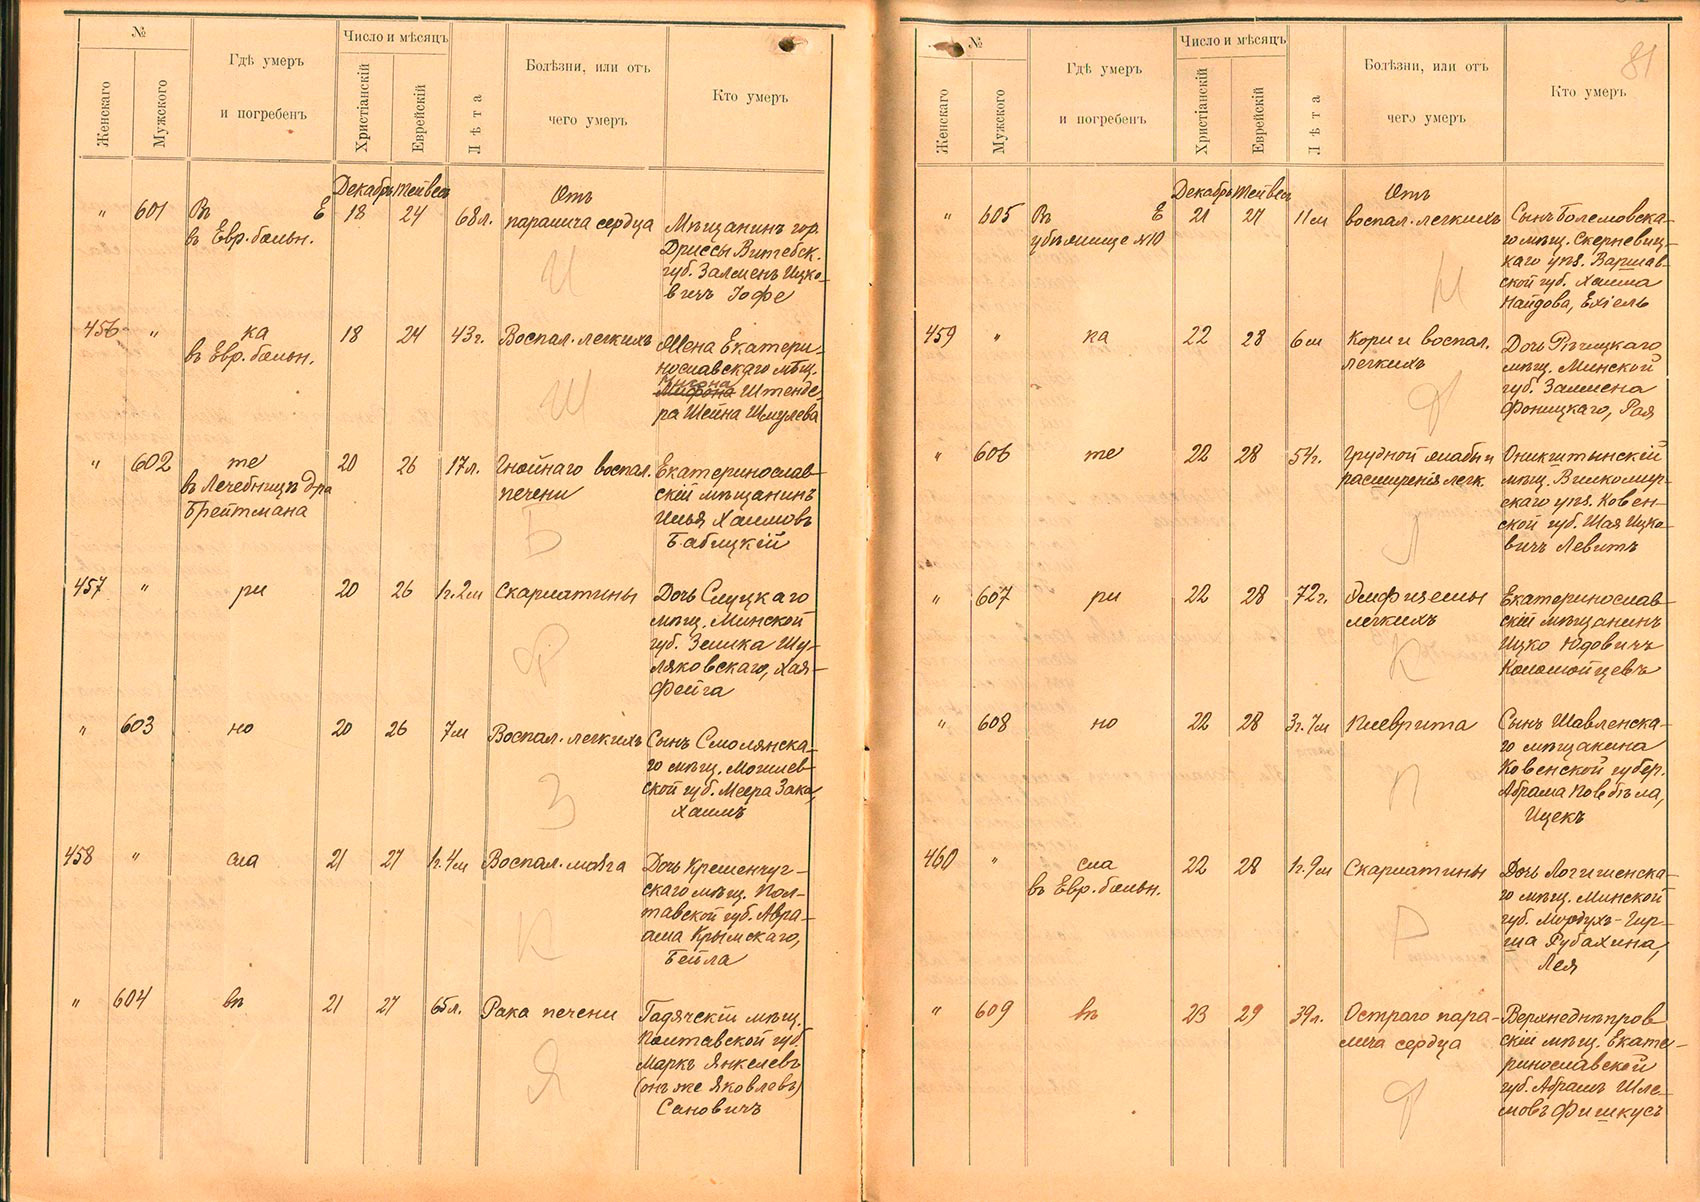 №
Женскаго
Мужского
Гдѣ умеръ
и погребенъ
Число и мѣсяцъ
Христіанскій
Еврейскій
Лѣта
Болѣзни, или отъ
чего умеръ
Кто умеръ
Декабрь Тейвесъ
Отъ
" 601 Въ Е 18 24 68л. паралича сердца
въ Евр. больн.
Мѣщанинъ гор.
Дриссы Витебск.
губ. Залменъ Ицко-
вичъ Іофе
И
456 " ка 18 24 43г. Воспал. легкихъ
въ Евр. больн.
Жена Екатери-
нославскаго мѣщ.
Штенде-
ра Шейна Шмулева
Ш
" 602 те 20 26 17л. Гнойнаго воспал.
въ Лечебницѣ д-ра печени
Брейтмана
Екатеринослав-
скій мѣщанинъ
Илья Хаимовъ
Бабицкій
Б
457 " ри 20 26 1г.2м Скарлатины
Дочь Слуцкаго
мѣщ. Минской
губ. Зелика Шу-
ляковскаго, Хая-
Фейга
" 603 но 20 26 7м Воспал. легкихъ
Сынъ Смолянска-
го мѣщ. Могилев-
ской губ. Меера Зака,
Хаимъ
З
458 " сла 21 27 1г.4м Воспал. мозга
Дочь Кременчуг-
скаго мѣщ. Пол-
тавской губ. Авра-
ама Крымскаго,
Бейла
К
" 604 въ 21 27 65л. Рака печени
Гадячскій мѣщ.
Полтавской губ.
Маркъ Янкелевъ
(онъ же Яковлевъ)
Сановичъ
Я
81
№
Женскаго
Мужского
Гдѣ умеръ
и погребенъ
Число и мѣсяцъ
Христіанскій
Еврейскій
Лѣта
Болѣзни, или отъ
чего умеръ
Кто умеръ
Декабрь Тейвесъ
Отъ
" 605 Въ Е 21 27 11м воспал. легкихъ
убѣжище №10
Сынъ Болемовска-
го мѣщ. Скерневиц-
каго уѣз. Варшав-
ской губ. Хаима
Найдова, Ехіель
Н
459 " ка 22 28 6м Кори и воспал.
легкихъ
Дочь Рѣчицкаго
мѣщ. Минской
губ. Залмена
Фоницкаго, Рая
Ф
" 606 те 22 28 54г. Грудной жабы и
расширенія легк.
Оникштынскій
мѣщ. Вилкомир-
скаго уѣз. Ковен-
ской губ. Шая Ицко-
вичъ Левитъ
Л
" 607 ри 22 28 72г. Эмфиземы
легкихъ
Екатеринослав-
скій мѣщанинъ
Ицко Юдовичъ
Коломойцевъ
К
" 608 но 22 28 3г.7м Плеврита
Сынъ Шавленска-
го мѣщанина
Ковенской губер.
Абрама Повебѣла,
Ицекъ
П
460 " сла 22 28 1г.9м Скарлатины
въ Евр. больн.
Дочь Логишенска-
го мѣщ. Минской
губ. Мордухъ-Гир-
ша Рубахина,
Лея
Р
" 609 въ 23 29 39л. Остраго пара-
лича сердца
Верхнеднѣпров
скій мѣщ. Екате-
ринославской
губ. Абрамъ Шле-
мовъ Фишкусъ
Ф